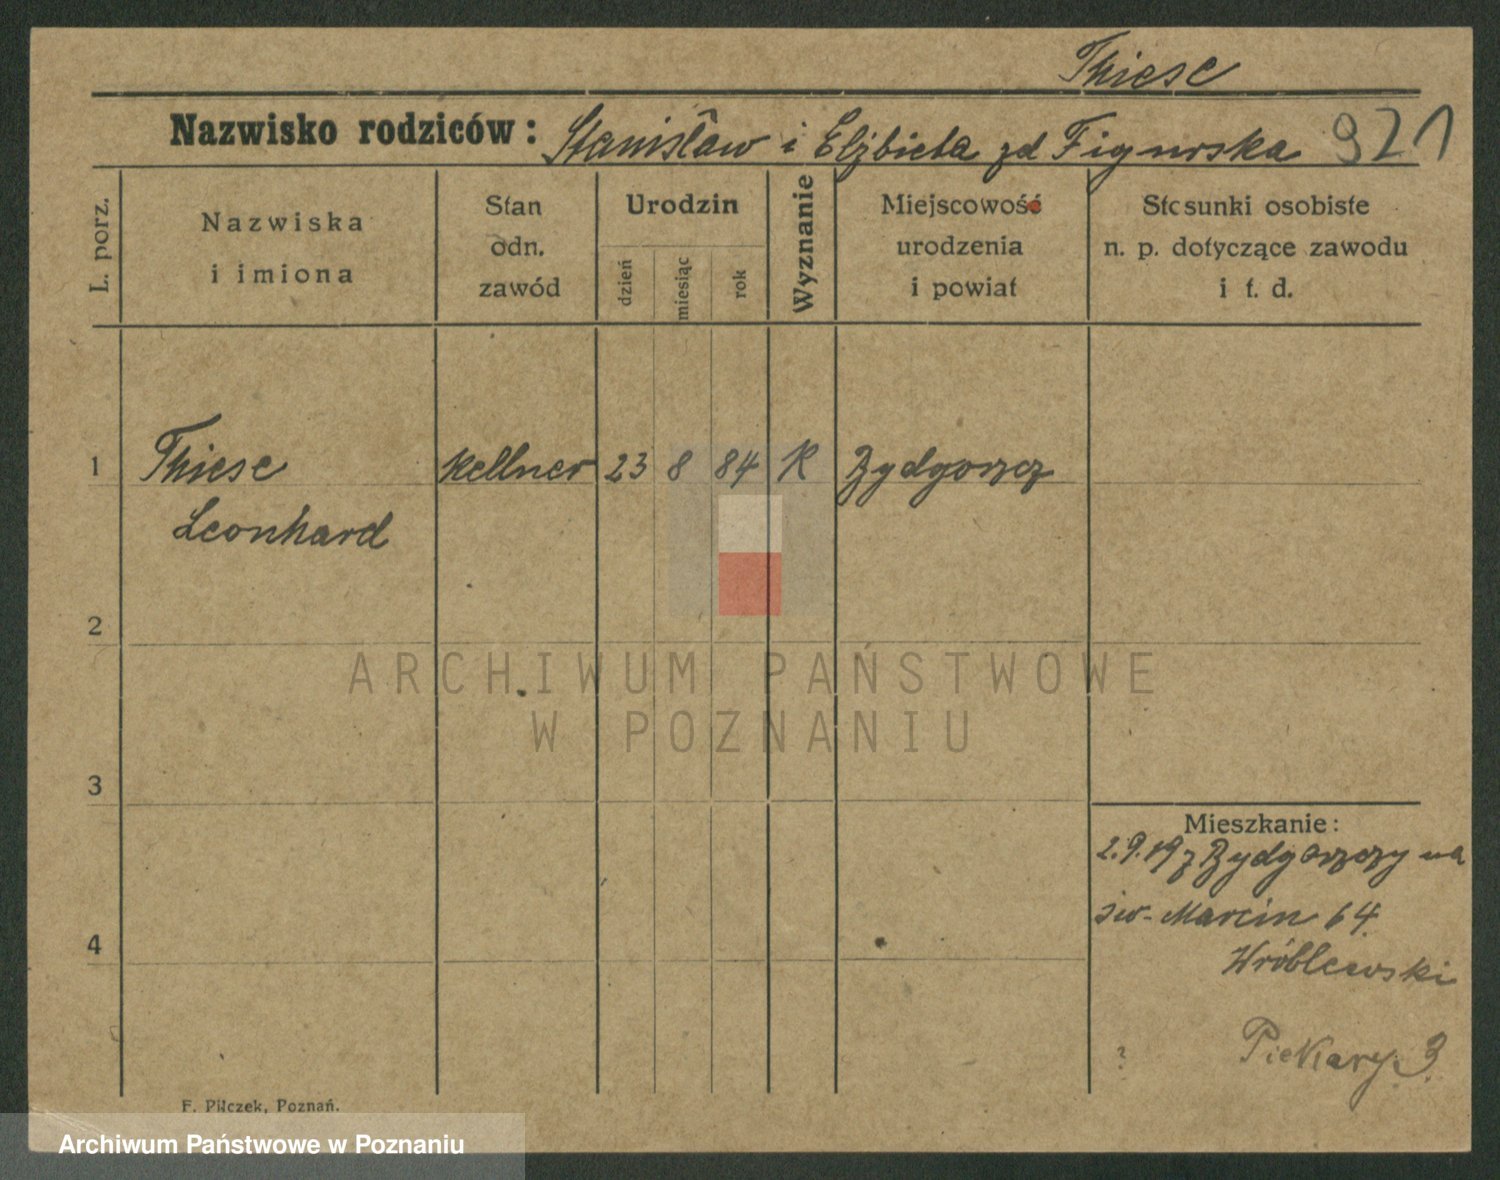 Thiese
Nazwisko rodziców: Stanisław i Elżbieta zd Figurska 921
L. porz.
Nazwiska
i imiona
Stan
odn.
zawód
Urodzin
dzień
miesiąc
rok
Wyznanie
Miejscowość
urodzenia
i powiat
Stosunki osobiste
n. p. dotyczące zawodu
i t. d.
1 Thiese Kellner 23 8 84 K Bydgoszcz
Leonhard
2
ARCHIWUM PAŃSTWOWE
W POZNANIU
3
Mieszkanie:
2.9.19 z Bydgoszczy na
św. Marcin 64.
4
Wróblewski
? Piekary 3
F. Pilczek, Poznań.
Archiwum Państwowe w Poznaniu